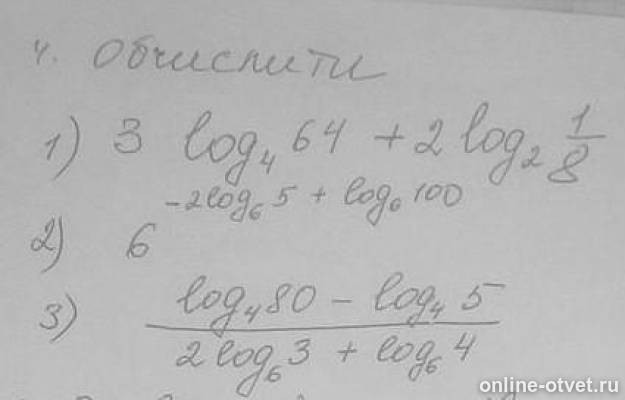 4. Обчислити
1) 3 log₄ 64 + 2 log₂ 1/8
2) 6^(-2log₆ 5 + log₆ 100)
3) (log₄ 80 - log₄ 5)/(2 log₆ 3 + log₆ 4)
online-otvet.ru